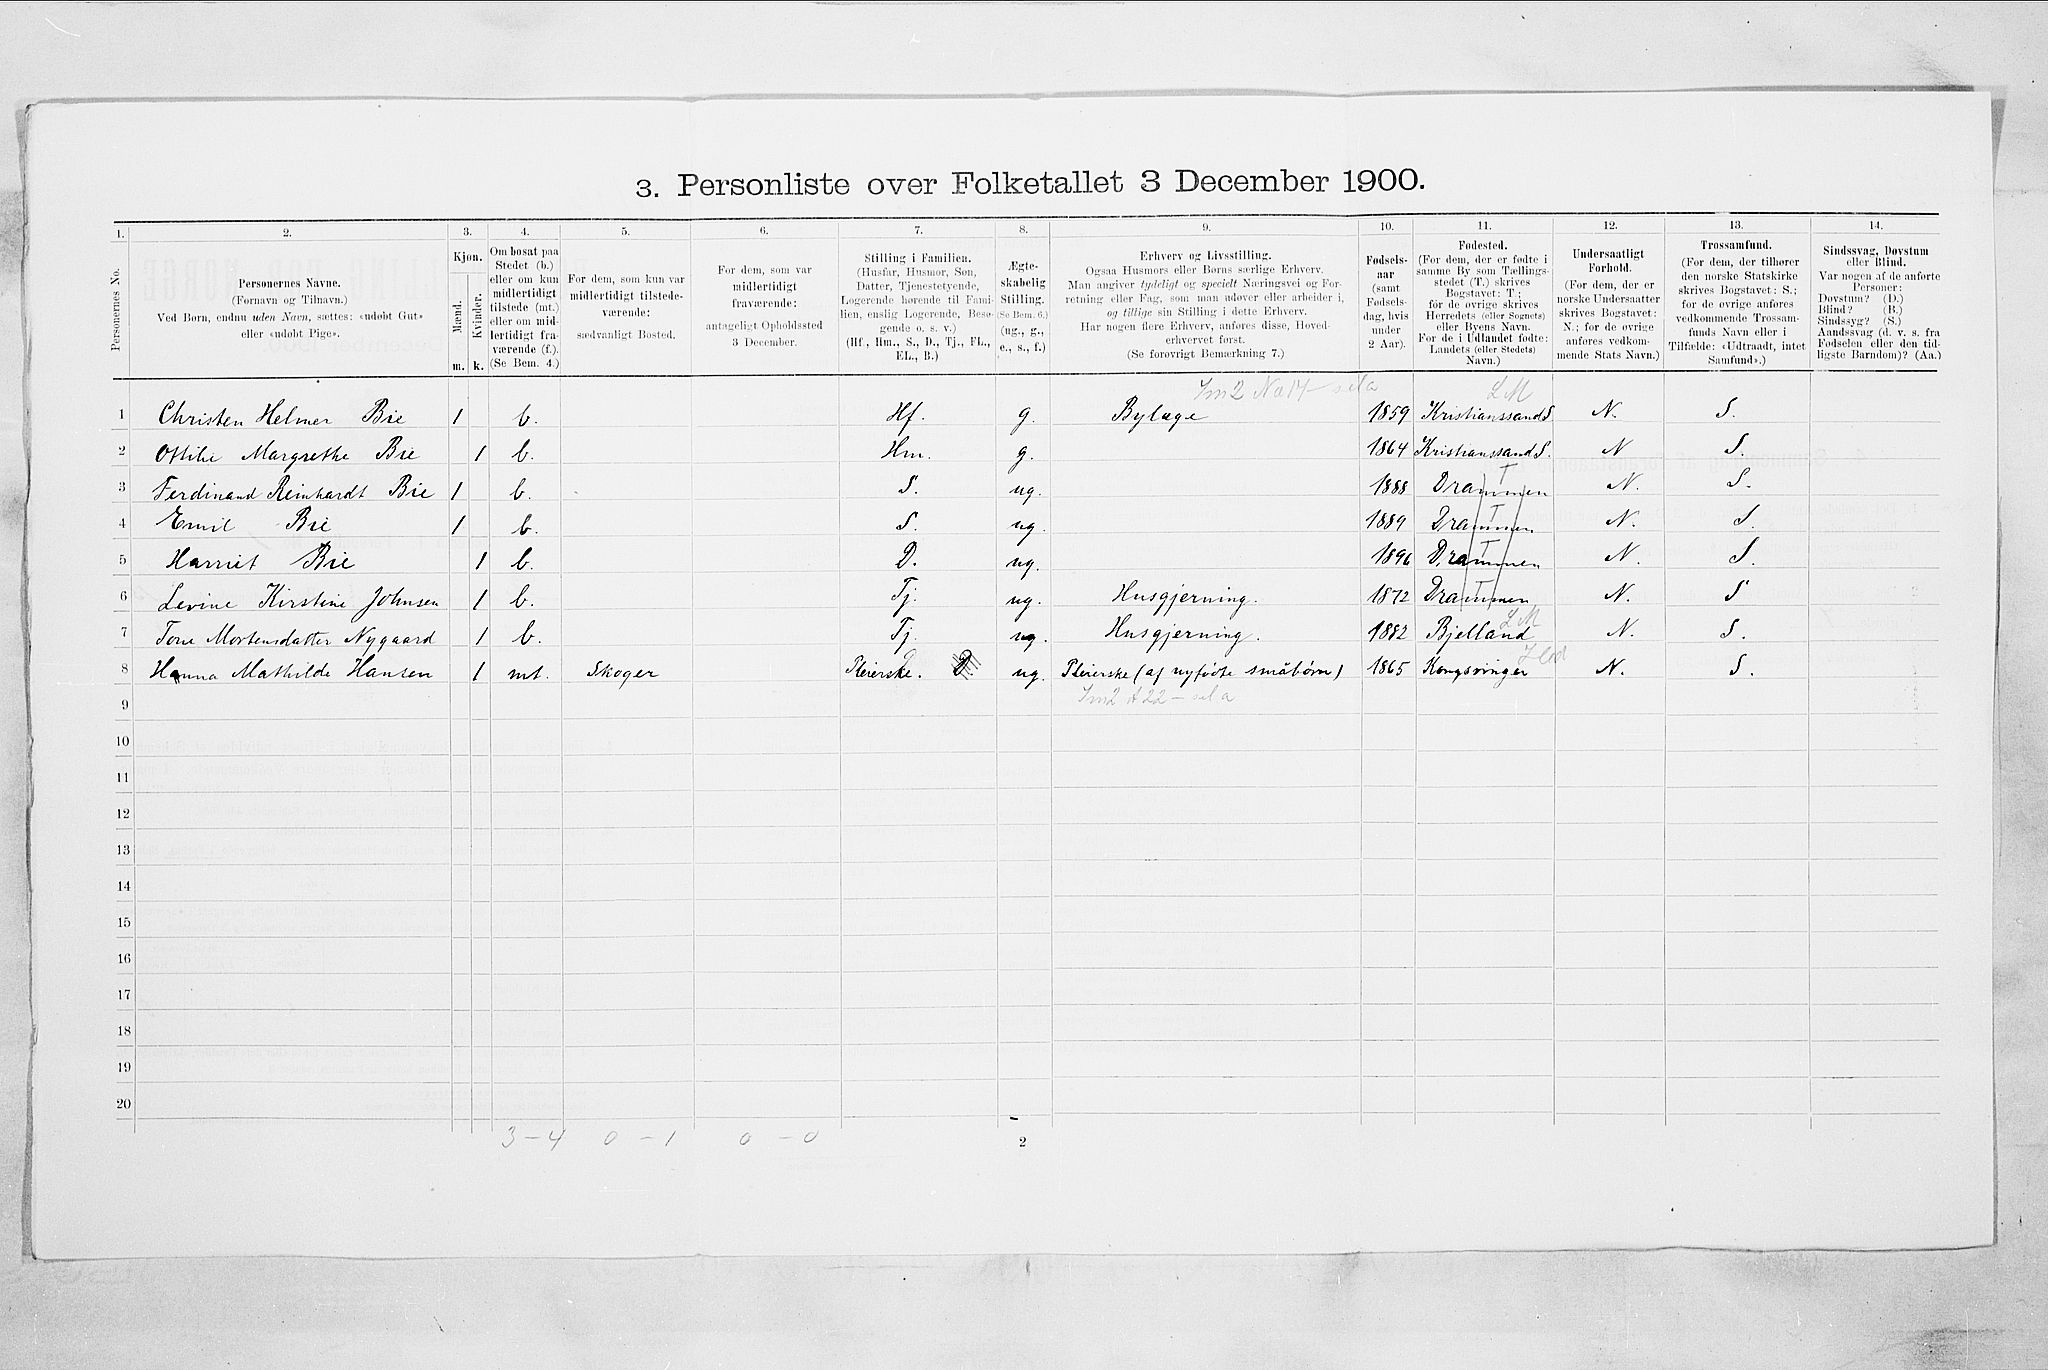 3. Personliste over Folketallet 3 December 1900.
1. 2. 3. 4. 5. 6. 7. 8. 9. 10. 11. 12. 13. 14.
Personernes No.
Personernes Navne.
(Fornavn og Tilnavn.)
Ved Børn, endnu uden Navn, sættes: «udøbt Gut»
eller «udøbt Pige».
Kjøn.
Mænd.
Kvinder.
m. k.
Om bosat paa
Stedet (b.)
eller om kun
midlertidigt
tilstede (mt.)
eller om mid-
lertidigt fra-
værende (f.).
(Se Bem. 4.)
For dem, som kun var
midlertidigt tilstede-
værende:
sædvanligt Bosted.
For dem, som var
midlertidigt
fraværende:
antageligt Opholdssted
3 December.
Stilling i Familien.
(Husfar, Husmor, Søn,
Datter, Tjenestetyende,
Logerende hørende til Fami-
lien, enslig Logerende, Besø-
gende o. s. v.)
(Hf., Hm., S., D., Tj., FL.,
EL., B.)
Ægte-
skabelig
Stilling.
(Se Bem. 6.)
(ug., g.,
e., s., f.)
Erhverv og Livsstilling.
Ogsaa Husmors eller Børns særlige Erhverv.
Man angiver tydeligt og specielt Næringsvei og For-
retning eller Fag, som man udøver eller arbeider i,
og tillige sin Stilling i dette Erhverv.
Har nogen flere Erhverv, anføres disse, Hoved-
erhvervet først.
(Se forøvrigt Bemærkning 7.)
Fødsels-
aar
(samt
Fødsels-
dag, hvis
under
2 Aar).
Fødested.
(For dem, der er fødte i
samme By som Tællings-
stedet (T.) skrives
Bogstavet: T.;
for de øvrige skrives
Herredets (eller Sognets)
eller Byens Navn.
For de i Udlandet fødte:
Landets (eller Stedets)
Navn.)
Undersaatligt
Forhold.
(For dem, der er
norske Undersaatter
skrives Bogstavet:
N.; for de øvrige
anføres vedkom-
mende Stats Navn.)
Trossamfund.
(For dem, der tilhører
den norske Statskirke
skrives Bogstavet: S.;
for de øvrige anføres
vedkommende Trossam-
funds Navn eller i
Tilfælde: «Udtraadt, intet
Samfund».)
Sindssvag, Døvstum
eller Blind.
Var nogen af de anførte
Personer:
Døvstum? (D.)
Blind? (B.)
Sindssyg? (S.)
Aandssvag (d. v. s. fra
Fødselen eller den tid-
ligste Barndom)? (Aa.)
L M
1 Christen Helmer Bie 1 b. Hf. g. Bylæge 1859 Kristianssand S. N. S.
2 Ottilie Margrethe Bie 1 b. Hm. g. 1864 Kristianssand S. N S.
3 Ferdinand Reinhardt Bie 1 b. S. ug. 1888 Drammen T N. S.
4 Emil Bie 1 b. S. ug. 1889 Drammen T N. S.
5 Harriet Bie 1 b. D. ug. 1896 Drammen T N. S.
6 Levine Kirstine Johnsen 1 b. Tj. ug. Husgjerning. 1872 Drammen T N. S
7 Tone Mortensdatter Nygaard 1 b. Tj. ug. Husgjerning. 1882 Bjelland L M N. S.
8 Hanna Mathilde Hansen 1 mt. Skoger Pleierske. ug. Pleierske (af nyfødte småbørn) 1865 Kongsvinger N. S.
9
10
11
12
13
14
15
16
17
18
19
20
3 – 4 0 – 1 0 – 0
2